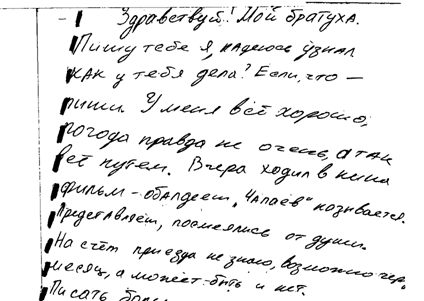 Здравствуй! Мой братуха.
Пишу тебе я, надеюсь узнал
как у тебя дела? Если, что –
пиши. У меня всё хорошо,
погода правда не очень, а так
всё путем. Вчера ходил в кина
фильм – обалдеешь, "Чапаев" называется.
Представляешь, посмеялись от души.
На счёт приезда не знаю, возможно чер.
месяц, а может быть и нет.
Писать